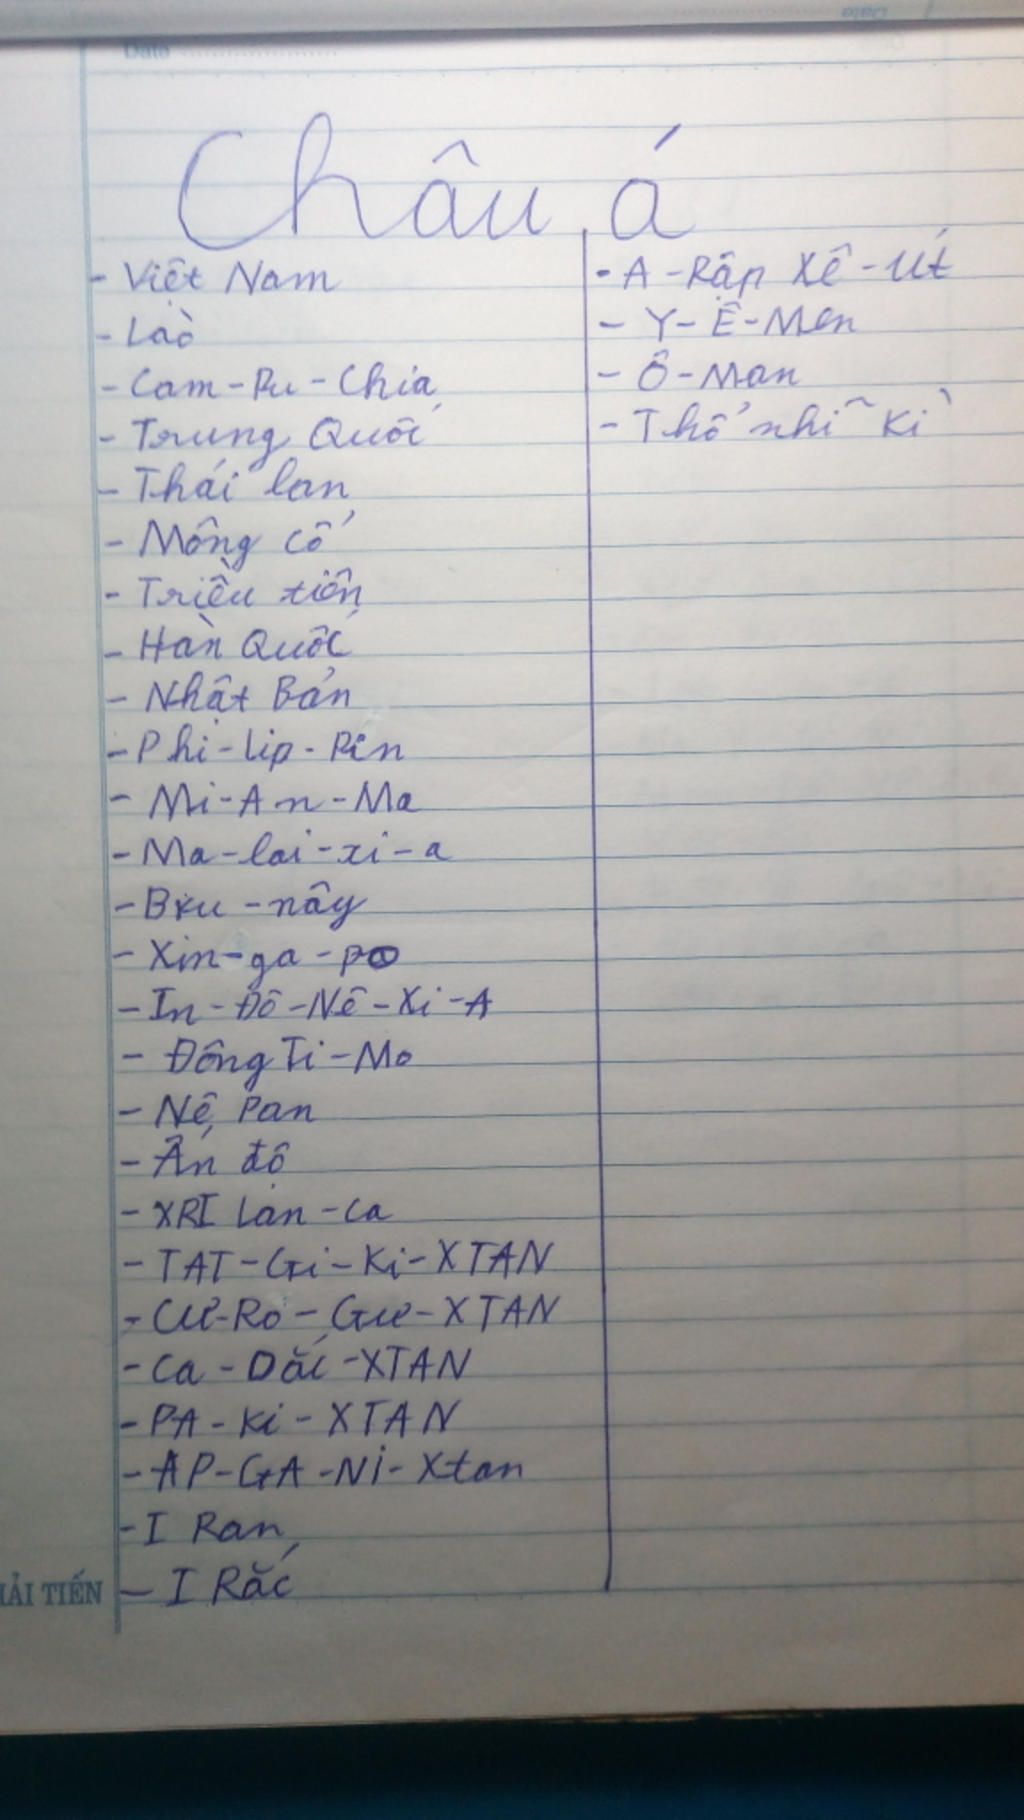 Date
Date
Châu á
- Việt Nam
- Lào
- Cam - Pu - Chia
- Trung Quốc
- Thái lan
- Mông cổ
- Triều tiên
- Hàn Quốc
- Nhật Bản
- Phi - lip - Pin
- Mi - An - Ma
- Ma - lai - xi - a
- Bru - nây
- Xin - ga - po
- In - Đô - Nê - Xi - A
- Đông Ti - Mo
- Nê Pan
- Ấn độ
- XRI Lan - ca
- TAT - Gi - Ki - XTAN
- Cư - Rơ - Gư - XTAN
- Ca - Dắc - XTAN
- PA - Ki - XTAN
- AP - GA - Ni - Xtan
- I Ran
- I Rắc
- A - Rập Xê - Út
- Y - Ê - Men
- Ô - Man
- Thổ nhĩ Kì
ẢI TIẾN